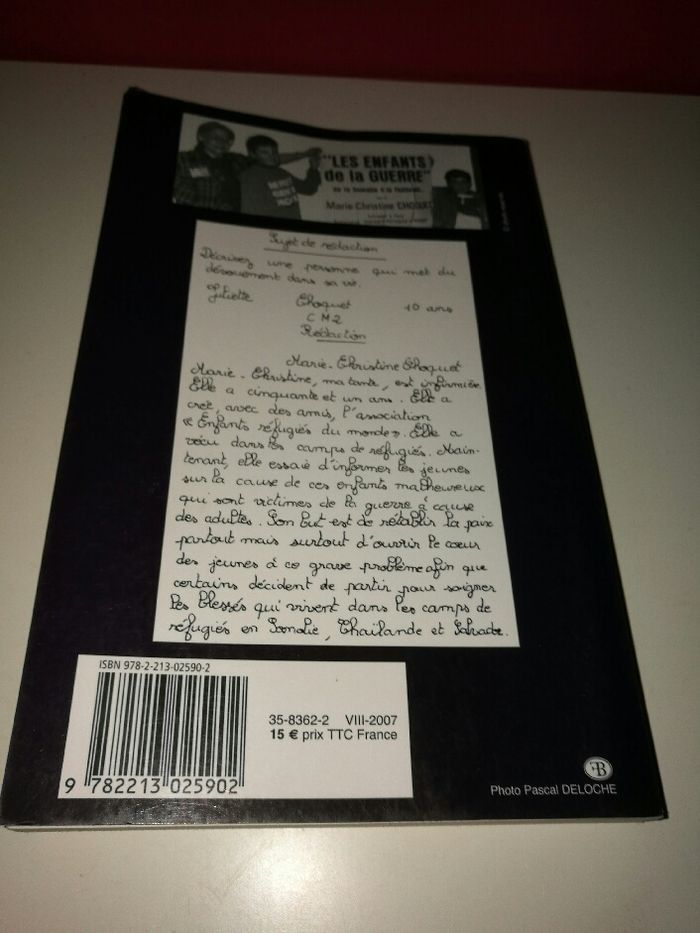 "LES ENFANTS
de la GUERRE"
Marie Christine CHOQUET
Sujet de rédaction
Décrivez une personne qui met du
dévouement dans sa vie.
Juliette Choquet 10 ans
CM2
Rédaction
Marie-Christine Choquet
Marie-Christine, ma tante, est infirmière.
Elle a cinquante et un ans. Elle a
créé, avec des amis, l'association
« Enfants réfugiés du monde ». Elle a
vécu dans les camps de réfugiés. Main-
tenant, elle essaie d'informer les jeunes
sur la cause de ces enfants malheureux
qui sont victimes de la guerre à cause
des adultes. Son but est de rétablir la paix
partout mais surtout d'ouvrir le cœur
des jeunes à ce grave problème afin que
certains décident de partir pour soigner
les blessés qui vivent dans les camps de
réfugiés en Somalie, Thaïlande et Salvador.
ISBN 978-2-213-02590-2
35-8362-2 VIII-2007
15 € prix TTC France
9 782213 025902
Photo Pascal DELOCHE